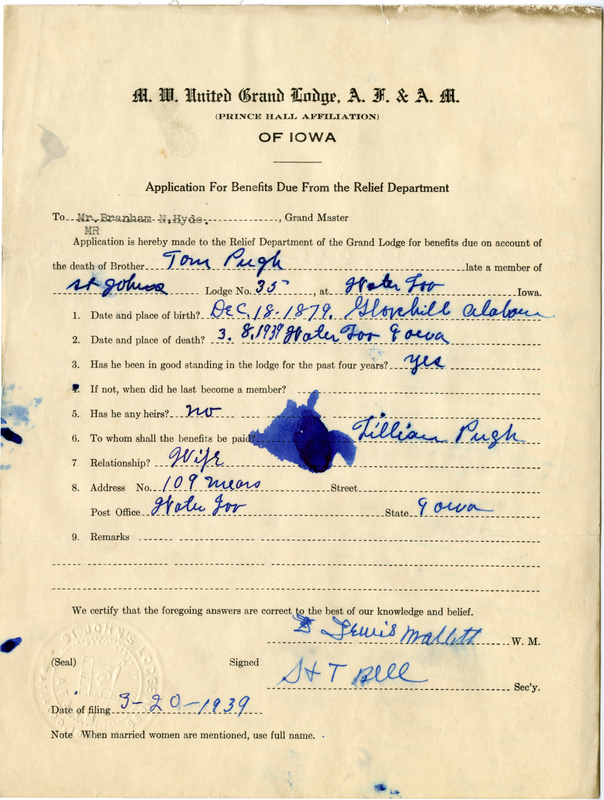 M. W. United Grand Lodge, A. F. & A. M.
(PRINCE HALL AFFILIATION)
OF IOWA
Application For Benefits Due From the Relief Department
To Mr. Branham N. Hyde. , Grand Master
MR
Application is hereby made to the Relief Department of the Grand Lodge for benefits due on account of
the death of Brother Tom Pugh late a member of
St Johns Lodge No. 35, at Water Loo Iowa.
1. Date and place of birth? Dec, 18-1879.
2. Date and place of death? 3. 8, 1939 Water Loo Iowa
3. Has he been in good standing in the lodge for the past four years? yes
If not, when did he last become a member?
5. Has he any heirs? no
6. To whom shall the benefits be paid? Lillian Pugh
7 Relationship? Wife
8. Address No. 109 Street
Post Office Water Loo State Iowa
9. Remarks
We certify that the foregoing answers are correct to the best of our knowledge and belief.
Lewis Mallett W. M.
(Seal) Signed
S H T Bell Sec'y.
ST. JOHN'S LODGE
Date of filing 3-20-1939
Note When married women are mentioned, use full name.